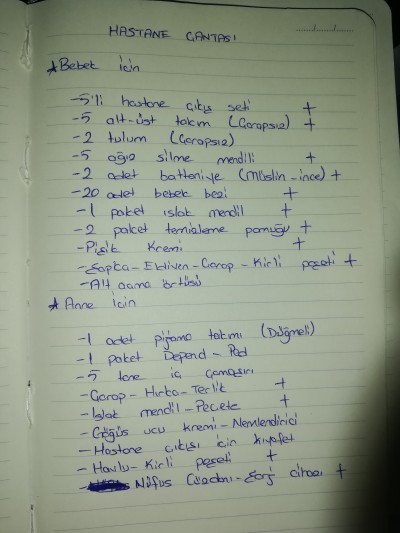 HASTANE ÇANTASI
..../..../....
★Bebek için
-5'li hastane çıkış seti +
-5 alt-üst takım (Çorapsız) +
-2 tulum (Çorapsız)
-5 ağız silme mendili +
-2 adet battaniye (Müslin-ince) +
-20 adet bebek bezi +
-1 paket ıslak mendil +
-2 paket temizleme pamuğu +
-Pişik Kremi +
-Şapka-Eldiven-Çorap-Kirli poşeti +
-Alt açma örtüsü
★Anne için
-1 adet pijama takımı (Düğmeli)
-1 paket Depend-Ped
-5 tane iç çamaşırı
-Çorap-Hırka-Terlik +
-Islak mendil-Peçete +
-Göğüs ucu kremi-Nemlendirici
-Hastane çıkışı için kıyafet
-Havlu-Kirli poşeti +
- Nüfus Cüzdanı-Şarj cihazı +